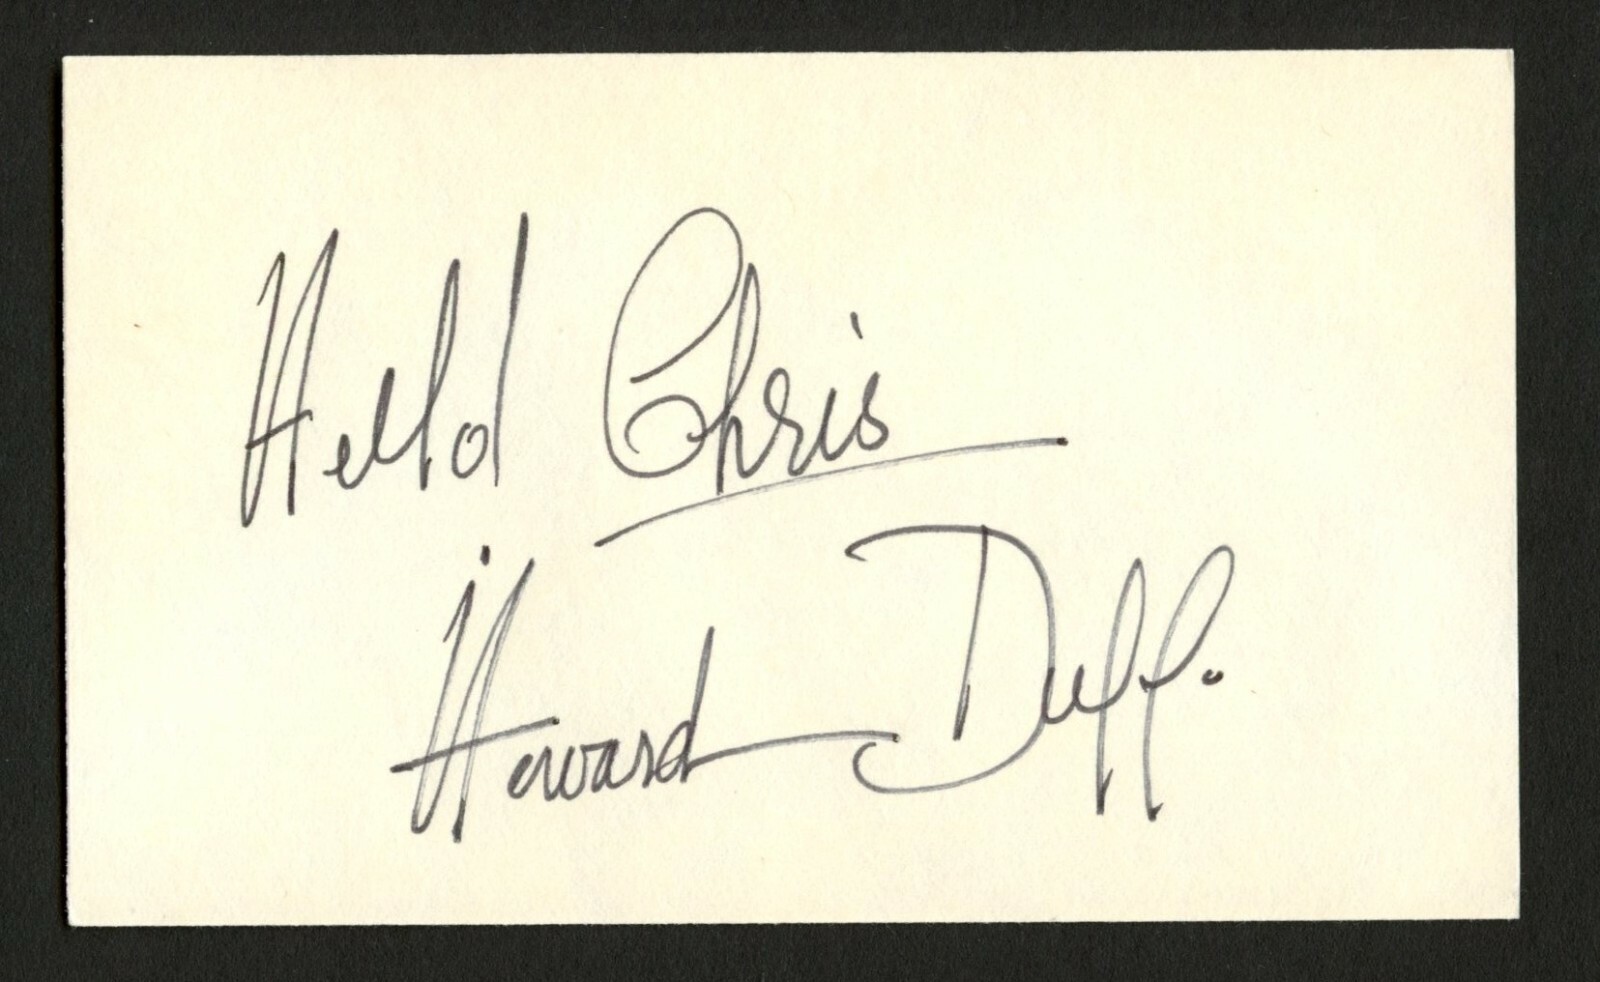 Hello Chris
Howard Duff.